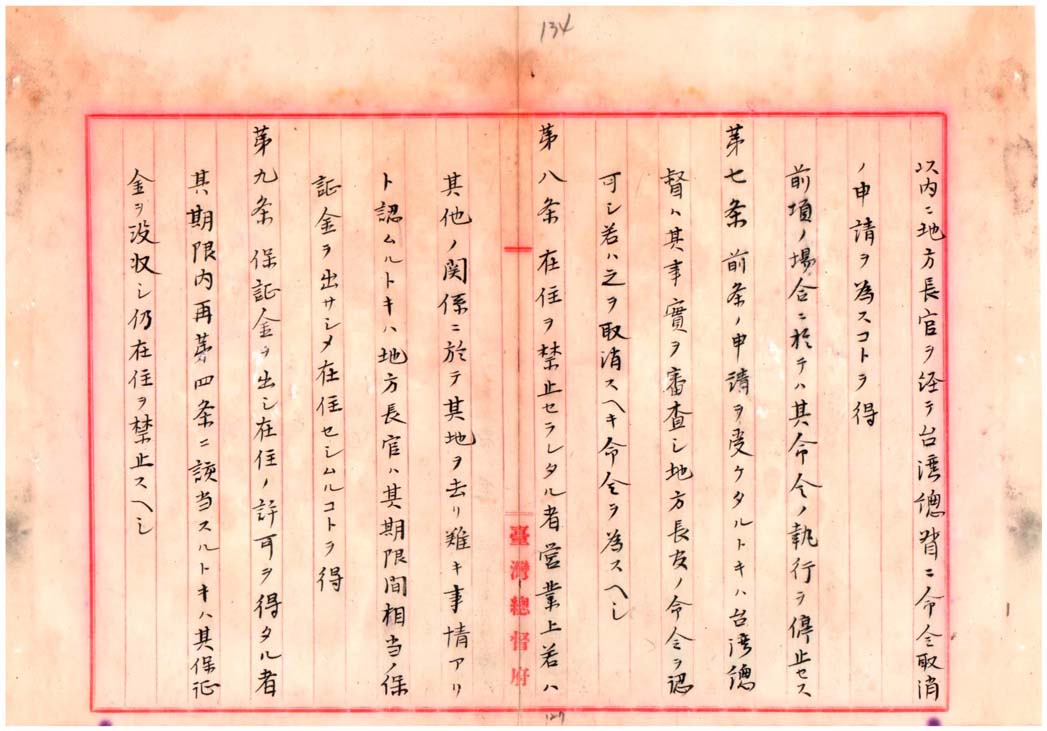 134
以内ニ地方長官ヲ経テ台湾總督ニ命令取消
ノ申請ヲ為スコトヲ得
前項ノ場合ニ於テハ其命令ノ執行ヲ停止セス
第七条 前条ノ申請ヲ受ケタルトキハ台湾總
督ハ其事實ヲ審査シ地方長官ノ命令ヲ認
可シ若ハ之ヲ取消スヘキ命令ヲ為スヘシ
第八条 在住ヲ禁止セラレタル者営業上若ハ
臺灣總督府
其他ノ関係ニ於テ其地ヲ去リ難キ事情アリ
ト認ムルトキハ地方長官ハ其期限間相当ノ保
証金ヲ出サシメ在住セシムルコトヲ得
第九条 保証金ヲ出シ在住ノ許可ヲ得タル者
其期限内再第四条ニ該当スルトキハ其保証
金ヲ没収シ仍在住ヲ禁止スヘシ
127